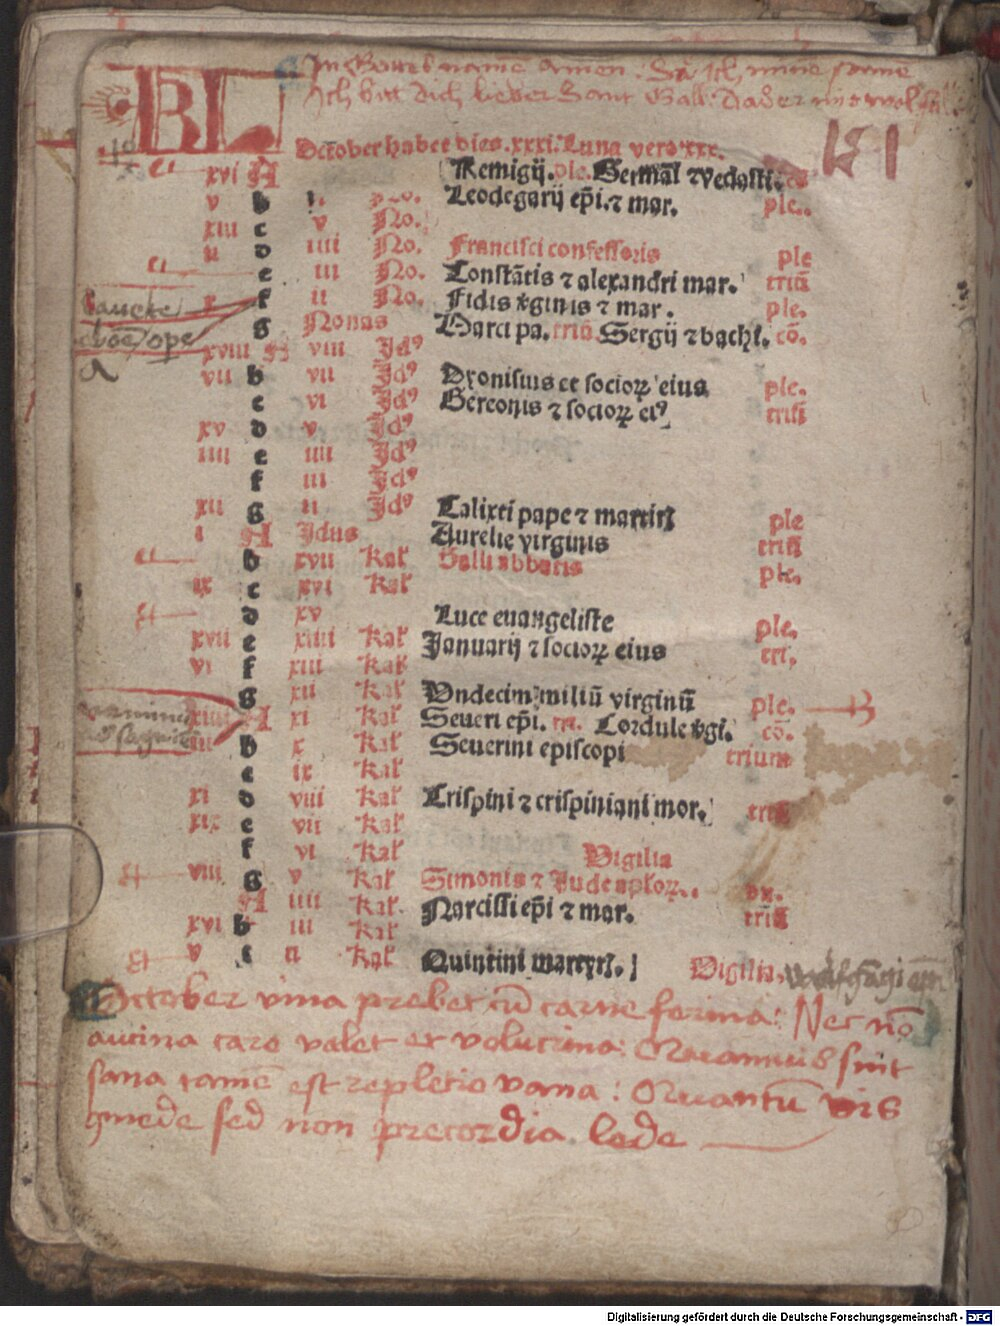 BL
In Gottes name Amen.
Ich bitt dich lieber Sant Gall:
October habet dies .xxxi. Luna vero xxx.
xvi A Remigij. ple. Germāl ⁊ vedasti. cō
v b Leodegarij ep̄i. ⁊ mar. ple.
xiii c v No.
ii d iiii No. Francisci confessoris ple
e iii No. Constātis ⁊ alexandri mar. triū
x f ii No. Fidis v̄ginis ⁊ mar. ple.
g Nonas Marci pa. triū. Sergij ⁊ bachi. cō.
xviii A viii Idꝰ
vii b vii Idꝰ Dyonisius et socioꝝ eius ple.
c vi Idꝰ Gereonis ⁊ socioꝝ eiꝰ triū
xv d v Idꝰ
iiii e iiii Idꝰ
f iii Idꝰ
xii g ii Idꝰ Calixti pape ⁊ martiris ple
i A Idus Aurelie virginis triū
b xvii Kal Galli abbatis ple.
ix c xvi Kal
d xv Luce euangeliste ple.
xvii e xiiii Kal Januarij ⁊ socioꝝ eius tri.
vi f xiii Kal
g xii Kal Vndecim miliū virginū ple. B
xiiii A xi Kal Seueri ep̄i. tri. Cordule v̄gi. cō.
iii b x Kal Seuerini episcopi trium
c ix Kal
xi d viii Kal Crispini ⁊ crispiniani mor. triū
xix e vii Kal
f vi Kal Vigilia
viii g v Kal Simonis ⁊ Jude apl'oꝝ. dx.
A iiii Kal. Narcissi ep̄i ⁊ mar. triū
xvi b iii Kal
v c ii Kal Quintini martyrꝭ. Vigilia, wolfgāgi ep̄i
October vina prebet cū carne ferina: Nec nō
aucina caro valet et volucrina: Quamuis sint
sana tamē est repletio vana: Quantū vis
comede sed non precordia lede
Digitalisierung gefördert durch die Deutsche Forschungsgemeinschaft - DFG